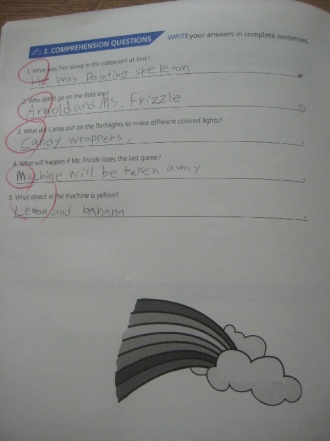 3. COMPREHENSION QUESTIONS WRITE your answers in complete sentences.
1. What was Tim doing in the classroom at first?
He was Painting skeleton
2. Who didn't go on the field trip?
Arnold and Ms. Frizzle
3. What did Carlos put on the flashlights to make different colored lights?
Candy wrappers.
4. What will happen if Ms. Frizzle loses the last game?
Machine will be taken away
5. What object in the machine is yellow?
Lemon and banana